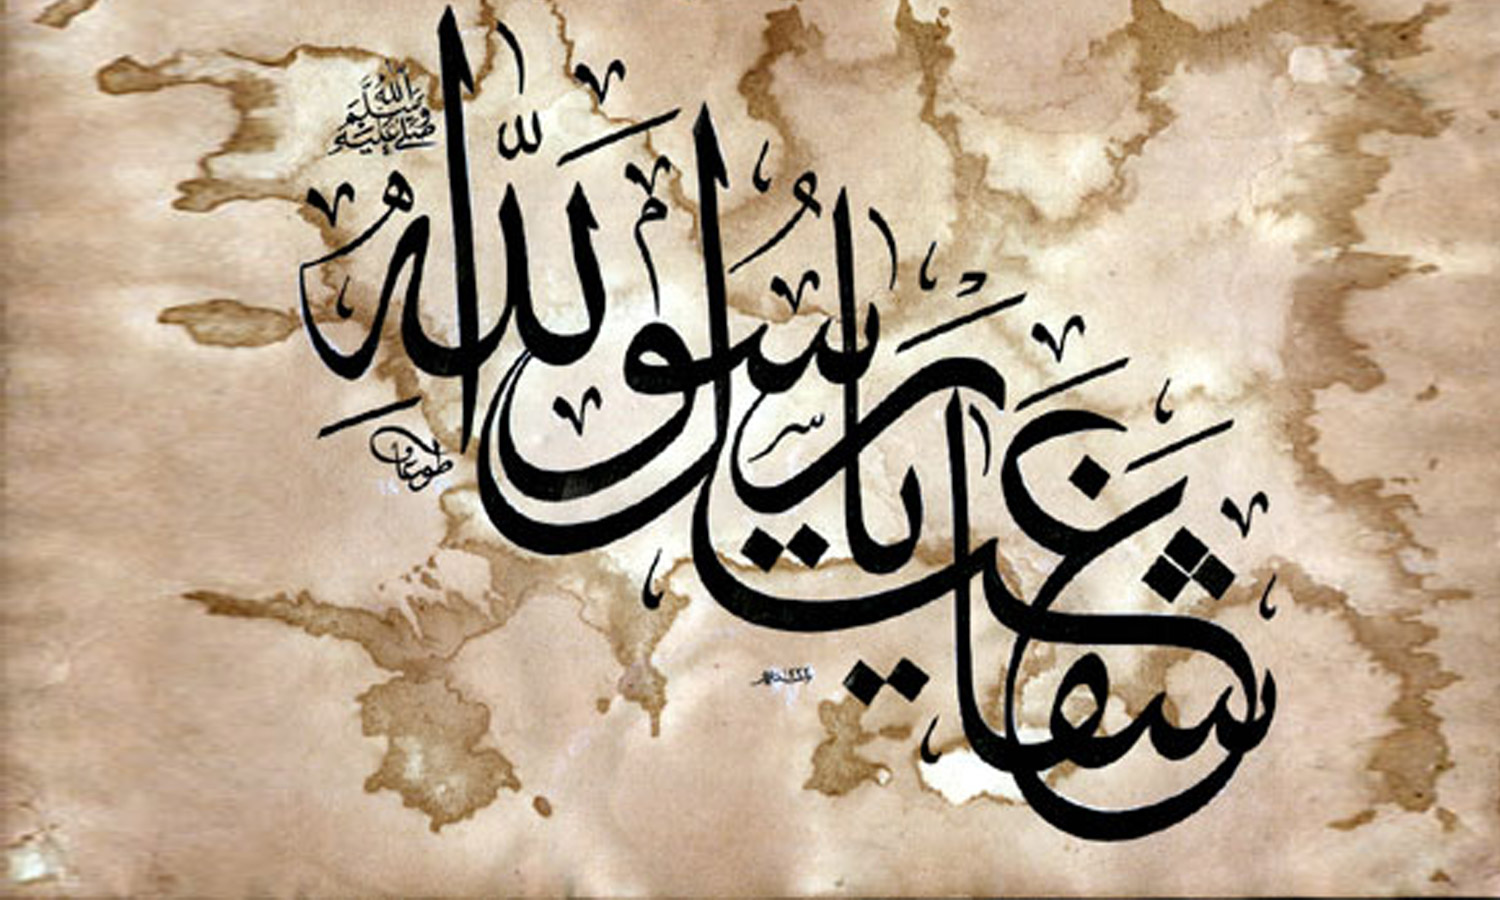 شفاعت يا رسول الله
صلى الله عليه وسلم